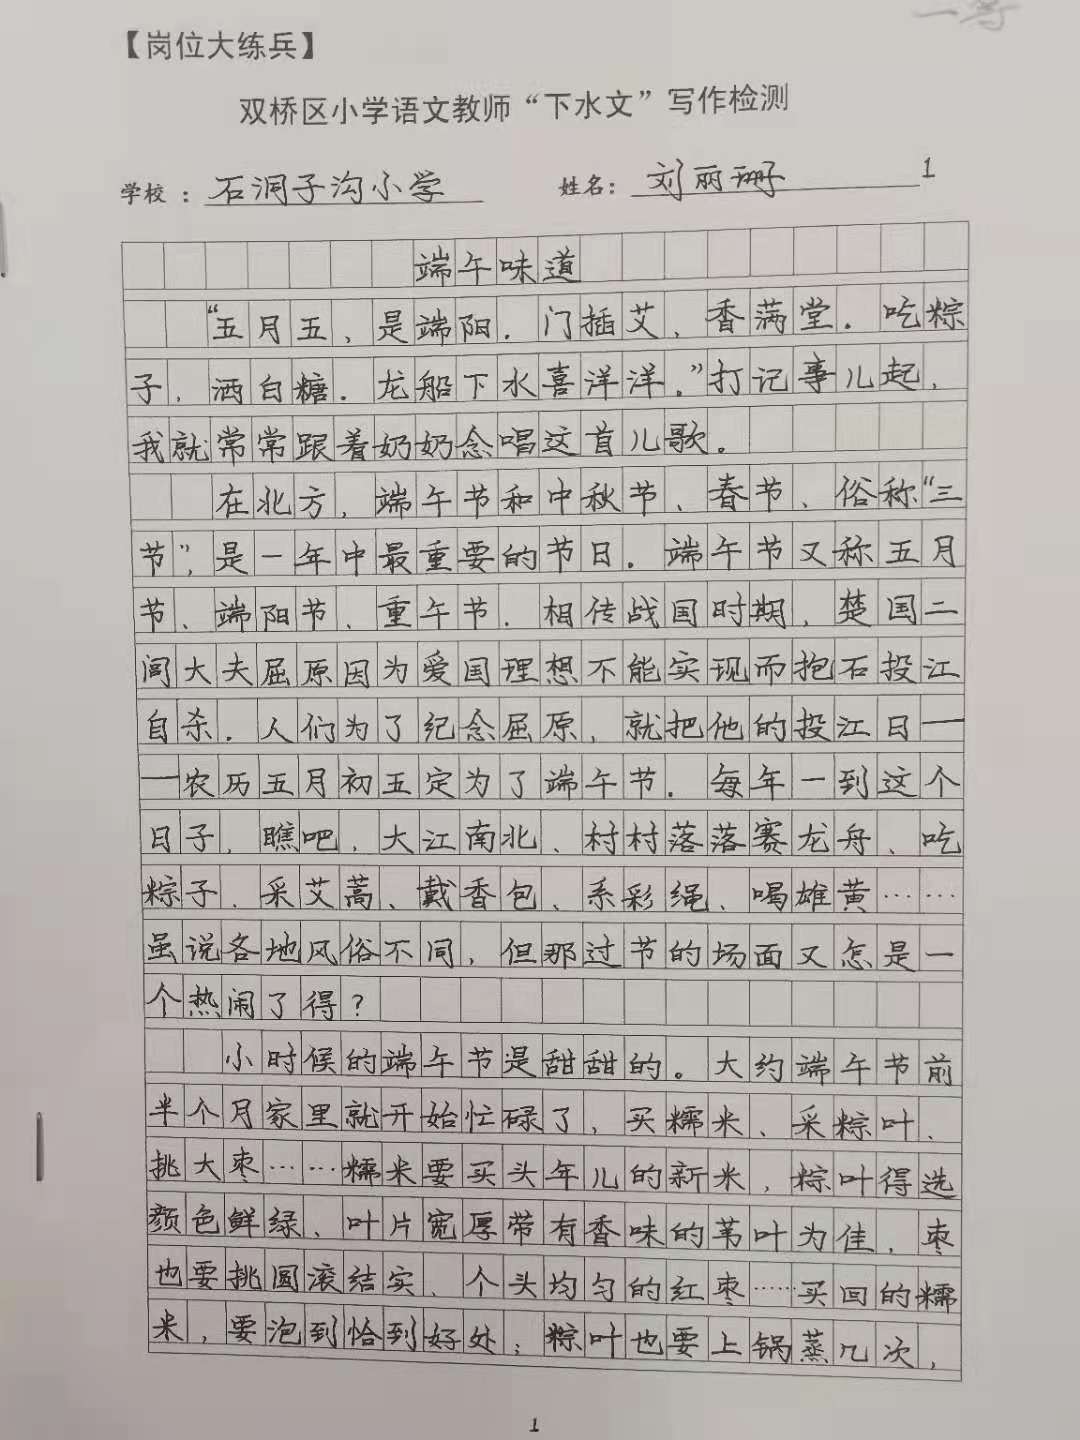 一等
【岗位大练兵】
双桥区小学语文教师“下水文”写作检测
学校：石洞子沟小学 姓名：刘丽珊 1
端午味道
“五月五，是端阳．门插艾，香满堂．吃粽
子，洒白糖．龙船下水喜洋洋．”打记事儿起，
我就常常跟着奶奶念唱这首儿歌。
在北方，端午节和中秋节、春节、俗称“三
节”，是一年中最重要的节日．端午节又称五月
节、端阳节、重午节．相传战国时期，楚国二
闾大夫屈原因为爱国理想不能实现而抱石投江
自杀．人们为了纪念屈原，就把他的投江日—
—农历五月初五定为了端午节．每年一到这个
日子，瞧吧，大江南北、村村落落赛龙舟、吃
粽子、采艾蒿、戴香包、系彩绳、喝雄黄……
虽说各地风俗不同，但那过节的场面又怎是一
个热闹了得？
小时候的端午节是甜甜的。大约端午节前
半个月家里就开始忙碌了，买糯米、采粽叶、
挑大枣……糯米要买头年儿的新米，粽叶得选
颜色鲜绿、叶片宽厚带有香味的苇叶为佳，枣
也要挑圆滚结实、个头均匀的红枣……买回的糯
米，要泡到恰到好处；粽叶也要上锅蒸几次，
1